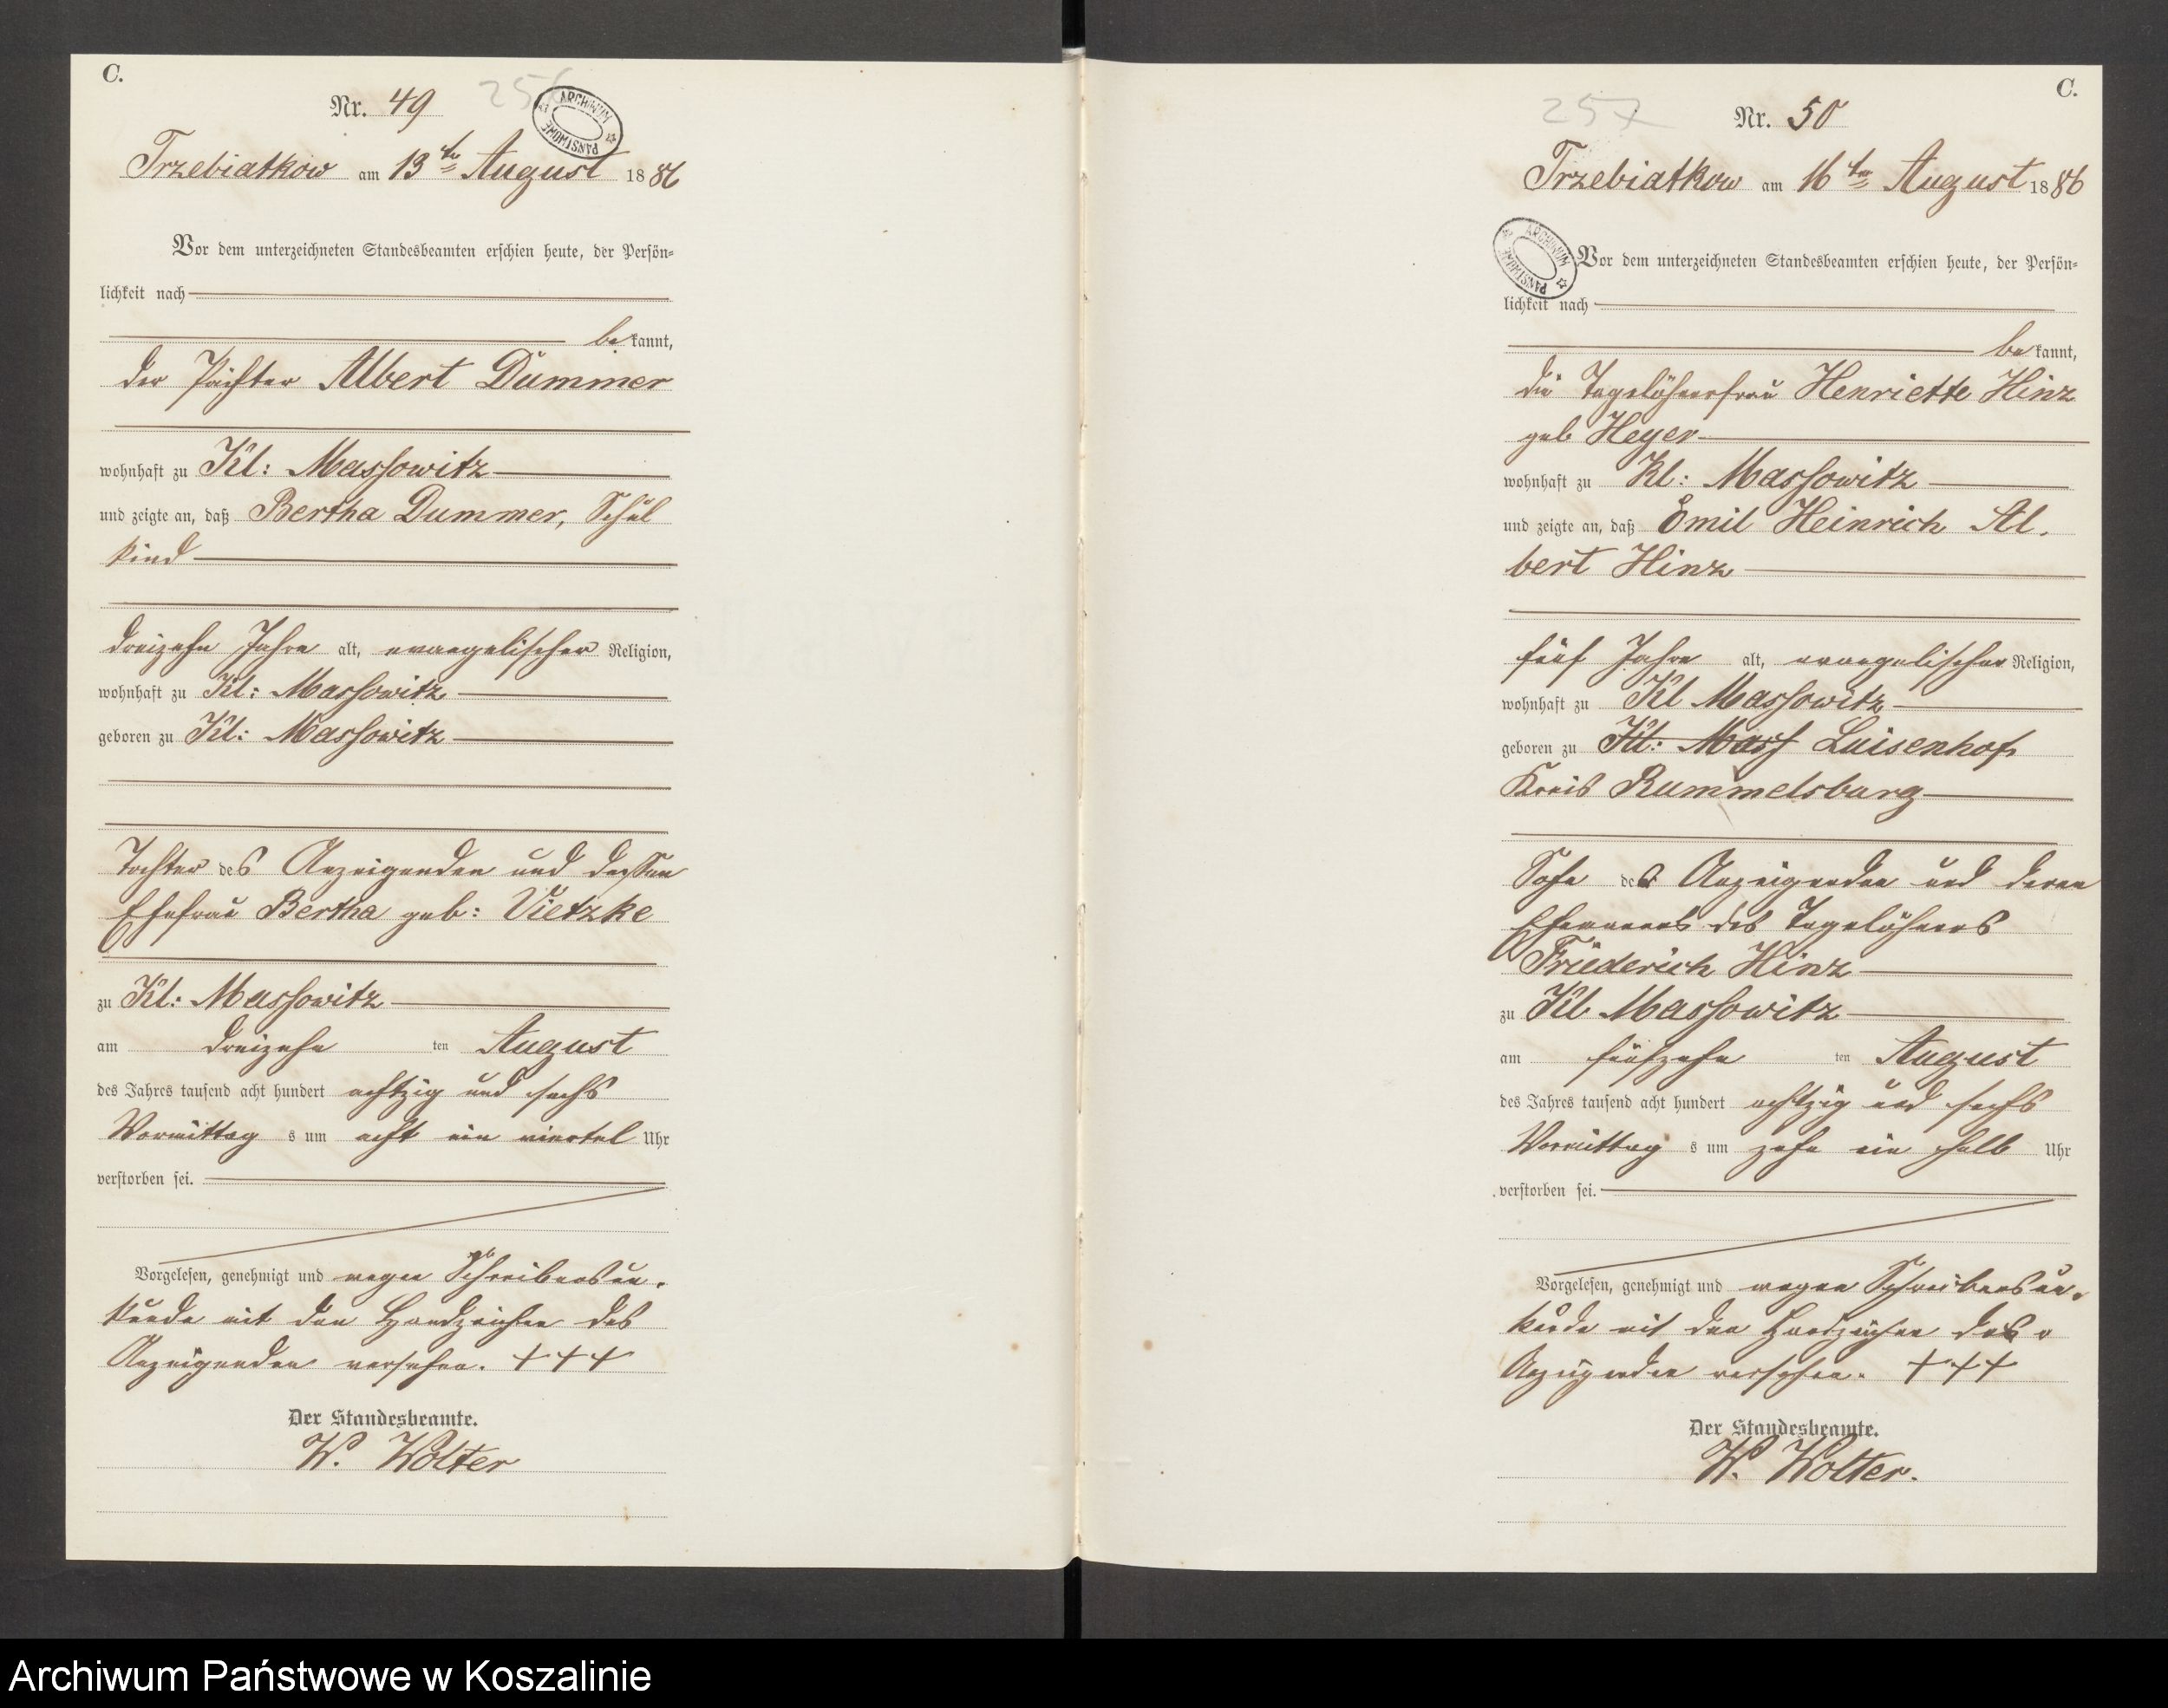 C.
Nr. 49
ARCHIWUM PAŃSTWOWE
Trzebiatkow am 13ten August 1886
Vor dem unterzeichneten Standesbeamten erschien heute, der Persön-
lichkeit nach
bekannt,
der Pächter Albert Dummer
wohnhaft zu Kl: Massowitz
und zeigte an, daß Bertha Dummer, Schul
kind
dreizehn Jahre alt, evangelischer Religion,
wohnhaft zu Kl: Massowitz
geboren zu Kl: Massowitz
Tochter des Anzeigenden und dessen
Ehefrau Bertha geb: Vietzke
zu Kl: Massowitz
am dreizehn ten August
des Jahres tausend acht hundert achtzig und sechs
Vormittag s um acht ein viertel Uhr
verstorben sei.
Vorgelesen, genehmigt und wegen Schreibensun-
kunde mit den Handzeichen des
Anzeigenden versehen. +++
Der Standesbeamte.
W. Wolter
C.
257
Nr. 50
Trzebiatkow am 16ten August 1886
ARCHIWUM PAŃSTWOWE
Vor dem unterzeichneten Standesbeamten erschien heute, der Persön-
lichkeit nach
bekannt,
die Tagelöhnerfrau Henriette Hinz
geb Heyer
wohnhaft zu Kl: Massowitz
und zeigte an, daß Emil Heinrich Al-
bert Hinz
fünf Jahre alt, evangelischer Religion,
wohnhaft zu Kl Massowitz
geboren zu Kl: Mass Luisenhof
Kreis Rummelsburg
Sohn der Anzeigenden und deren
Ehemanns des Tagelöhners
Friederich Hinz
zu Kl Massowitz
am fünfzehn ten August
des Jahres tausend acht hundert achtzig und sechs
Vormittag s um zehn ein halb Uhr
verstorben sei.
Vorgelesen, genehmigt und wegen Schreibensun-
kunde mit den Handzeichen der
Anzeigenden versehen. +++
Der Standesbeamte.
W. Wolter.
Archiwum Państwowe w Koszalinie